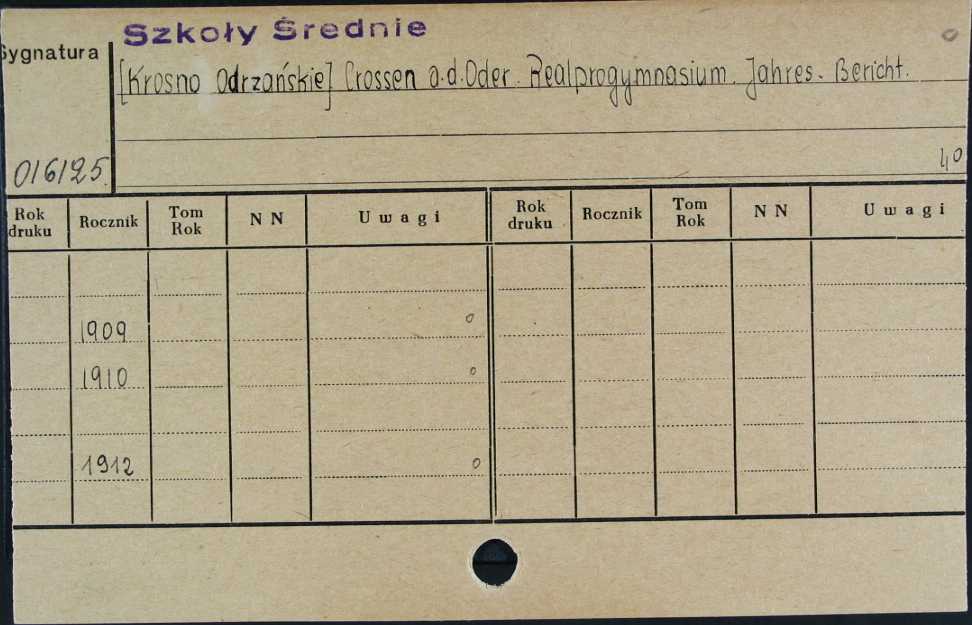 Szkoły Średnie
Sygnatura
[Krosno Odrzańskie] Crossen a.d.Oder. Realprogymnasium. Jahres-Bericht.
016125
40
Rok druku Rocznik Tom Rok NN Uwagi Rok druku Rocznik Tom Rok NN Uwagi
1909 o
1910 o
1912 o